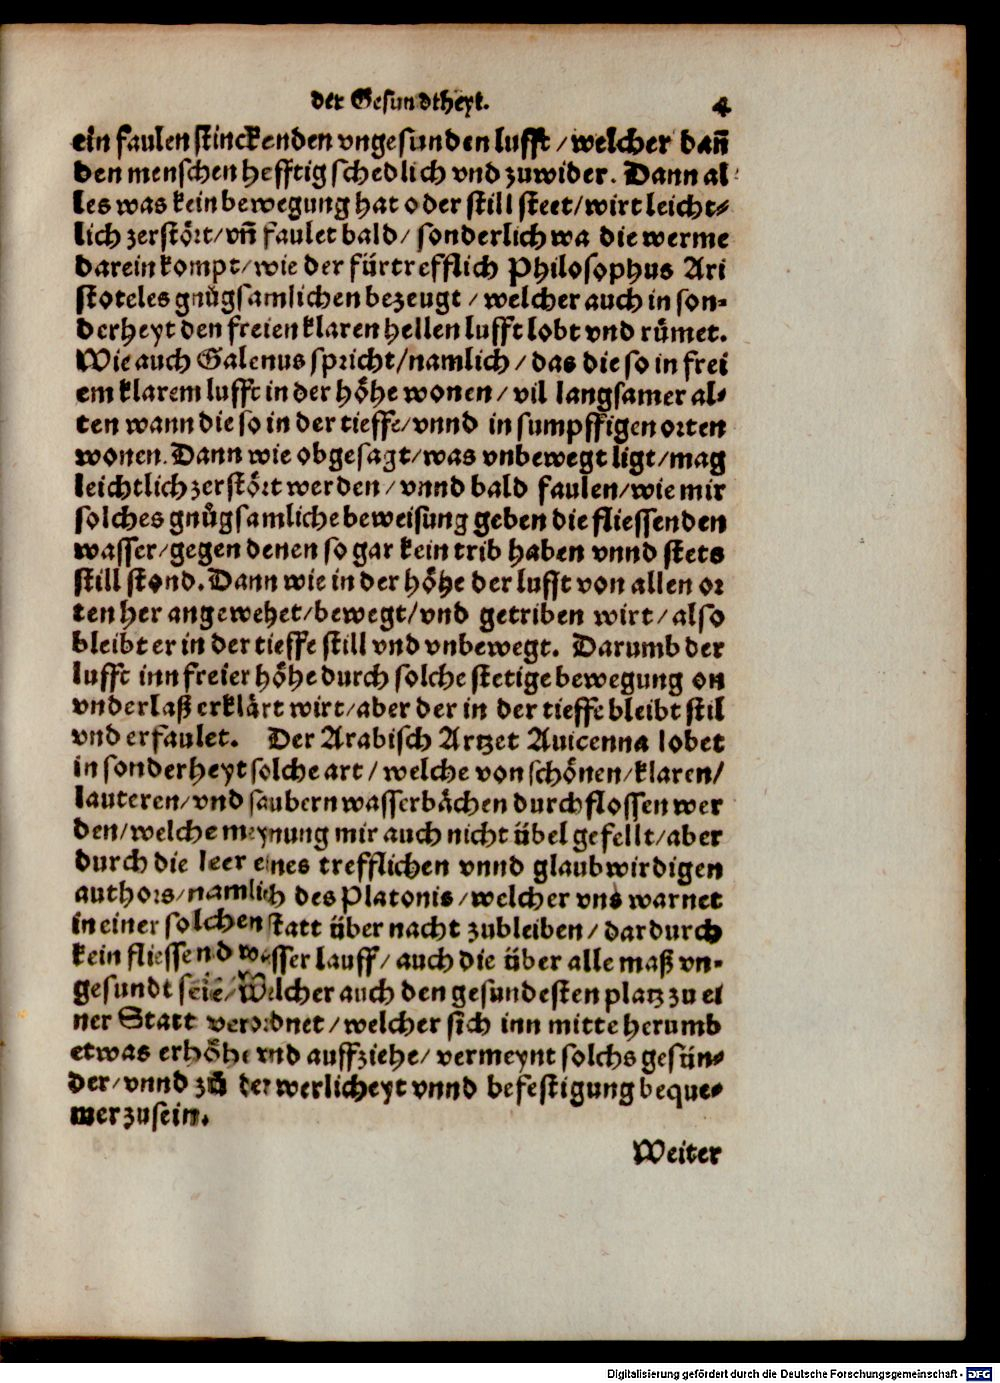 der Gesundtheyt. 4
ein faulen stinckenden vngesunden lufft / welcher dañ
den menschen hefftig schedlich vnd zuwider. Dann al-
les was kein bewegung hat oder still steet / wirt leicht-
lich zerstört / vñ faulet bald / sonderlich wa die werme
darein kompt / wie der fürtrefflich Philosophus Ari
stoteles gnůgsamlichen bezeugt / welcher auch in son-
derheyt den freien klaren hellen lufft lobt vnd růmet.
Wie auch Galenus spricht / namlich / das die so in frei
em klarem lufft in der höhe wonen / vil langsamer al-
ten wann die so in der tieffe / vnnd in sumpffigen orten
wonen. Dann wie obgesagt / was vnbewegt ligt / mag
leichtlich zerstört werden / vnnd bald faulen / wie mir
solches gnůgsamliche beweisung geben die fliessenden
wasser / gegen denen so gar kein trib haben vnnd stets
still stond. Dann wie in der höhe der lufft von allen or
ten her angewehet / bewegt / vnd getriben wirt / also
bleibt er in der tieffe still vnd vnbewegt. Darumb der
lufft inn freier höhe durch solche stetige bewegung on
vnderlaß erklärt wirt / aber der in der tieffe bleibt stil
vnd erfaulet. Der Arabisch Artzet Auicenna lobet
in sonderheyt solche art / welche von schönen / klaren /
lauteren / vnd saubern wasserbächen durchflossen wer
den / welche meynung mir auch nicht übel gefellt / aber
durch die leer eines trefflichen vnnd glaubwirdigen
authors / namlich des Platonis / welcher vns warnet
in einer solchen statt über nacht zubleiben / dardurch
kein fliessend wasser lauff / auch die über alle maß vn-
gesundt seie / Welcher auch den gesundesten platz zu ei
ner Statt verordnet / welcher sich inn mitte herumb
etwas erhöhe vnd auffziehe / vermeynt solchs gesün-
der / vnnd zů der werlicheyt vnnd befestigung beque-
mer zusein.
Weiter
Digitalisierung gefördert durch die Deutsche Forschungsgemeinschaft - DFG